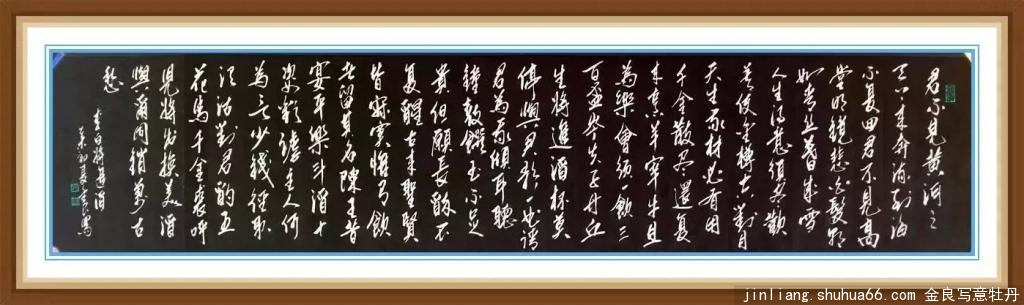 君不見黃河之
天上來奔流到海
不復回君不見高
堂明鏡悲白髮朝
如青絲暮成雪
人生得意須尽歡
莫使金樽空對月
天生我材必有用
千金散尽還復
來烹羊宰牛且
為樂會須一飲三
百盃岑夫子丹丘
生將進酒杯莫
停與君歌一曲請
君為我傾耳聽
鐘鼓饌玉不足
貴但願長醉不
復醒古來聖賢
皆寂寞惟有飲
者留其名陳王昔
宴平樂斗酒十
恣歡謔主人何
為言少錢徑取
須沽對君酌五
花馬千金裘呼
兒將出換美酒
與爾同銷萬古
愁
李白將進酒
jinliang.shuhua66.com 金良写意牡丹